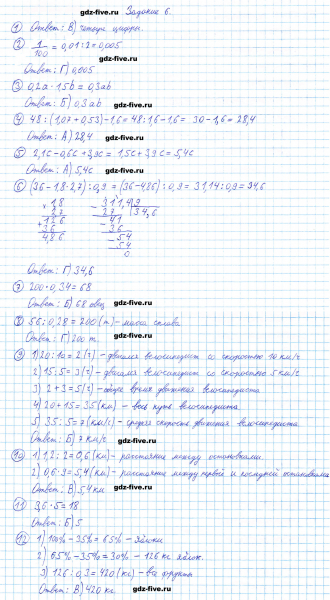 gdz-five.ru Задание 6.
1) Ответ: В) четыре цифры.
2) 1/100 = 0,01 : 2 = 0,005
Ответ: Г) 0,005 gdz-five.ru
3) 0,2a · 1,5b = 0,3ab
Ответ: Б) 0,3ab gdz-five.ru
4) 48 : (1,07 + 0,53) - 1,6 = 48 : 1,6 - 1,6 = 30 - 1,6 = 28,4
Ответ: А) 28,4 gdz-five.ru
5) 2,1c - 0,6c + 3,9c = 1,5c + 3,9c = 5,4c
Ответ: А) 5,4c gdz-five.ru
6) (36 - 1,8 · 2,7) : 0,9 = (36 - 4,86) : 0,9 = 31,14 : 0,9 = 34,6
× 1,8 - 311,4 | 9
2,7 27 | 34,6
+ 126 - 41
36 36
4,86 - 54
54
0
Ответ: Г) 34,6 gdz-five.ru
7) 200 · 0,34 = 68
Ответ: Б) 68 овец gdz-five.ru
8) 56 : 0,28 = 200 (т) - масса сплава
Ответ: Г) 200 т. gdz-five.ru
9) 1) 20 : 10 = 2 (ч) - двигался велосипедист со скоростью 10 км/ч
2) 15 : 5 = 3 (ч) - двигался велосипедист со скоростью 5 км/ч
3) 2 + 3 = 5 (ч) - общее время движения велосипедиста
4) 20 + 15 = 35 (км) - весь путь велосипедиста
5) 35 : 5 = 7 (км/ч) - средняя скорость движения велосипедиста
Ответ: Б) 7 км/ч gdz-five.ru
10) 1) 1,2 : 2 = 0,6 (км) - расстояние между остановками
2) 0,6 · 9 = 5,4 (км) - расстояние между первой и последней остановками
Ответ: В) 5,4 км gdz-five.ru
11) 3,6 · 5 = 18
Ответ: Б) 5 gdz-five.ru
12) 1) 100% - 35% = 65% - яблоки
2) 65% - 35% = 30% - 126 кг яблок.
3) 126 : 0,3 = 420 (кг) - все фрукты.
Ответ: В) 420 кг. gdz-five.ru